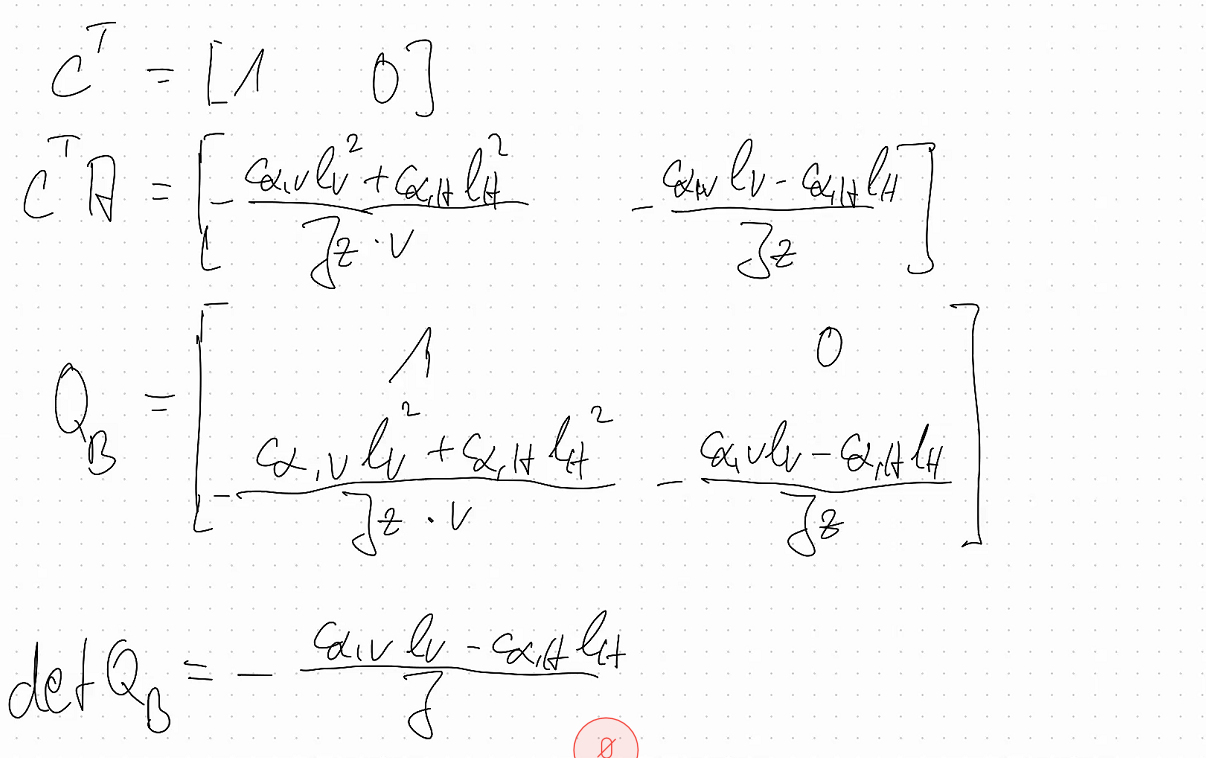 C^T = [1 0]
C^T A = [ - (c_{α,V} l_V^2 + c_{α,H} l_H^2) / (J_z · v)   - (c_{α,V} l_V - c_{α,H} l_H) / J_z ]
Q_B = [ 1   0
- (c_{α,V} l_V^2 + c_{α,H} l_H^2) / (J_z · v)   - (c_{α,V} l_V - c_{α,H} l_H) / J_z ]
det Q_B = - (c_{α,V} l_V - c_{α,H} l_H) / J
Ø